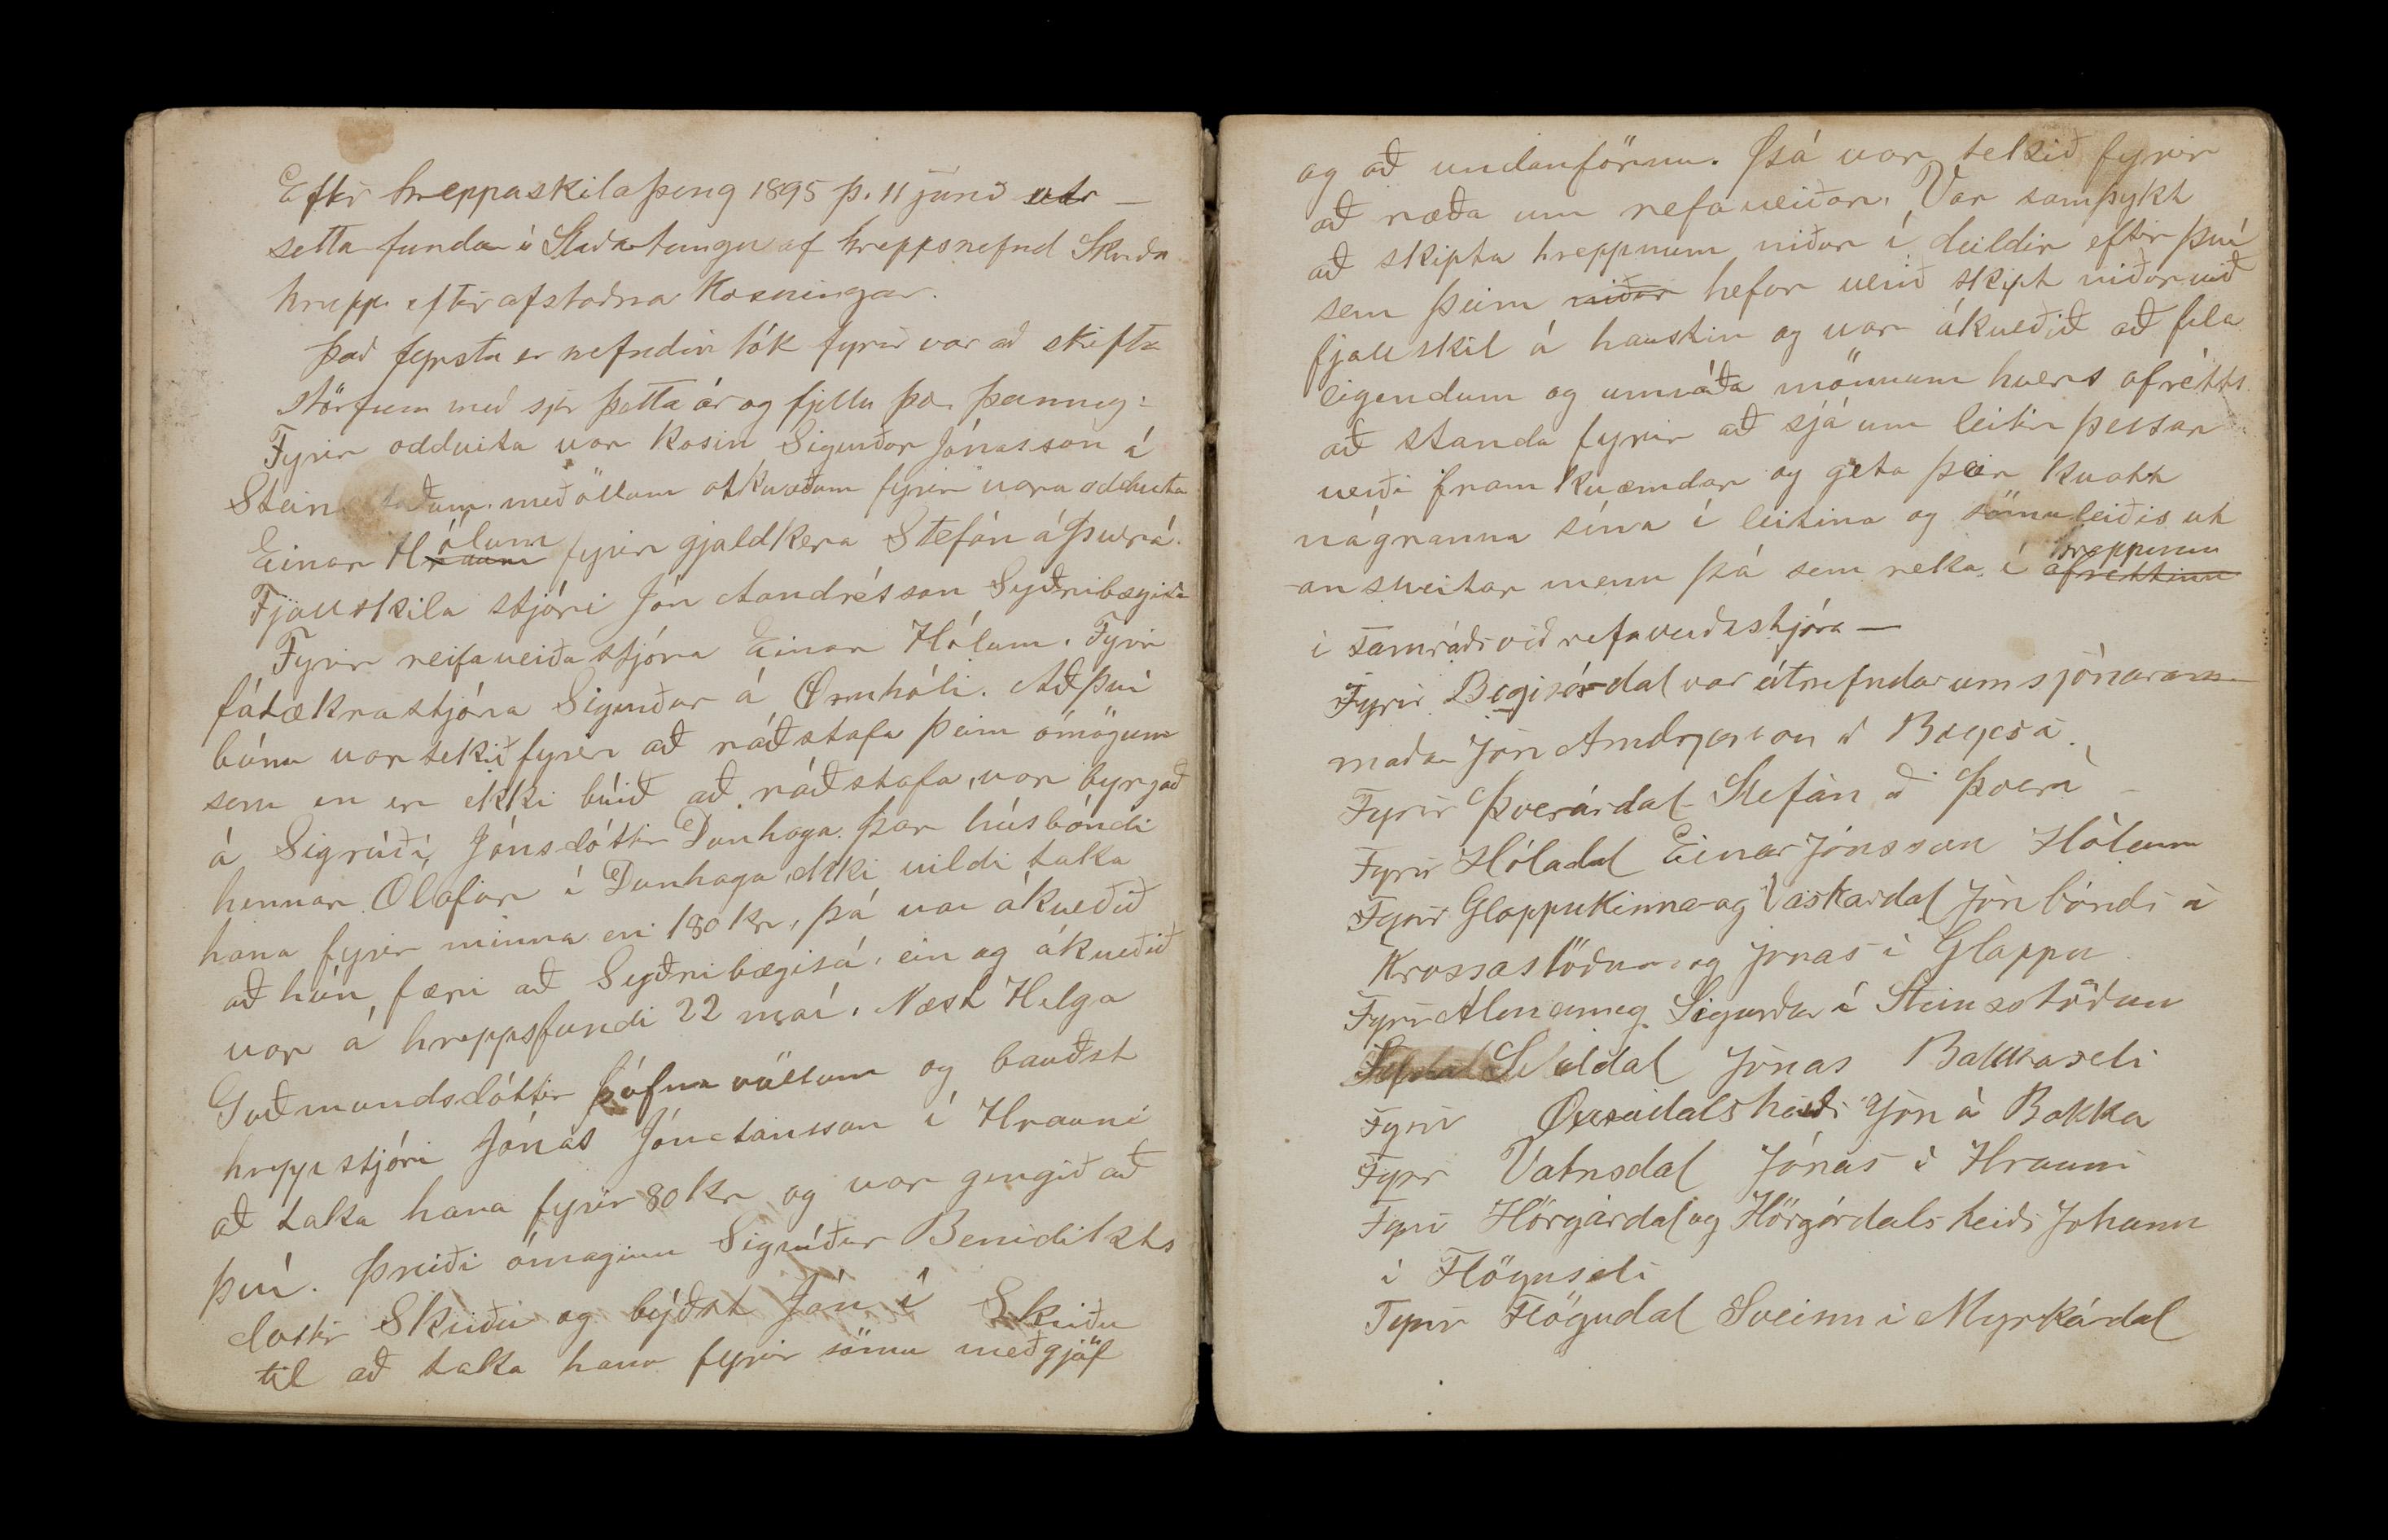 Eftir hreppaskilaþing 1895 þ. 11 júní utr –
setta fundar í Staðartungu af hreppsnefnd Skriðu
hrepp. eftir afstaðna kosningar.
Það fyrsta er nefndin tók fyrir var að skifta
störfum með sjer þetta ár og fjellu þr. þannig:
Fyrir oddvita var kosin Sigurður Jónasson á
Stein staðum. með öllum atkvæðum fyrir vara oddvita
Einar Hraun ólum fyrir gjaldkera Stefán á Þverá.
Fjallskila stjóri Jón Aandrésson Syðribægisá
Fyrir reifaveiða stjóra Einar Hólum. Fyrir
fátækrastjóra Sigurður á Ormhóli. Að því
búnu var tekið fyrir að ráðstafa þeim ómögum
sem en er ekki búið að ráðstafa, var byrjað
á Sigríði Jónsdóttir Dunhaga. Þar húsbóndi
hennar Olafur í Dunhaga, ekki vildi taka
hana fyrir minna en 180 kr, þá var ákveðið
að hún færi að Syðribægisá, ein og ákveðið
var á hreppsfundi 22 maí. Næst Helga
Guðmundsdóttir Þófnavöllum og bauðst
hreppstjóri Jónas Jónatansson í Hrauni
að taka hana fyrir 80 kr og var gengið að
því. Þriði ómaginn Sigríður Benidikts
dottir Skriðu og býðst Jón í Skriðu
til að taka hana fyrir sömu meðgjöf
og að undanförnu. Þá var tekið fyrir
að ræða um refaveiðar. Var samþykt
að skipta hreppnum niður í deildir eftir því
sem þeim niður hefur verið skipt niður við
fjallskil á haustin og var ákveðið að fela
eigendum og umráða mönnum hvers afrétts
að standa fyrir að sjá um leitir þessar
veiði framkvæmdar og geta þeir kvatt
nágranna sína í leitina og sömuleiðis ut
-an sveitar menn þá sem reka í afréttinn hreppinum
í samráði við refaveiðastjóra –
Fyrir Bægisárdal var útnefndur umsjónarm–
maður Jón Andrjesson á Bægisá.
Fyrir Þverárdal Stefán á Þverá –
Fyrir Hóladal Einar Jónsson Hólum
Fyrir Gloppukinna og Vaskardal Jón bóndi á
Krossastöðum og Jónas í Gloppu
Fyrir Almenning Sigurður á Steinsstöðum
Seldal Seldal Jónas Bakkaseli
Fyrir Öxnadalsheiði Jón á Bakka
Fyrir Vatnsdal Jónas í Hrauni
Fyrir Hörgárdal og Hörgárdalsheiði Johann
í Flöguseli
Fyrir Flögudal Sveinn í Myrkárdal